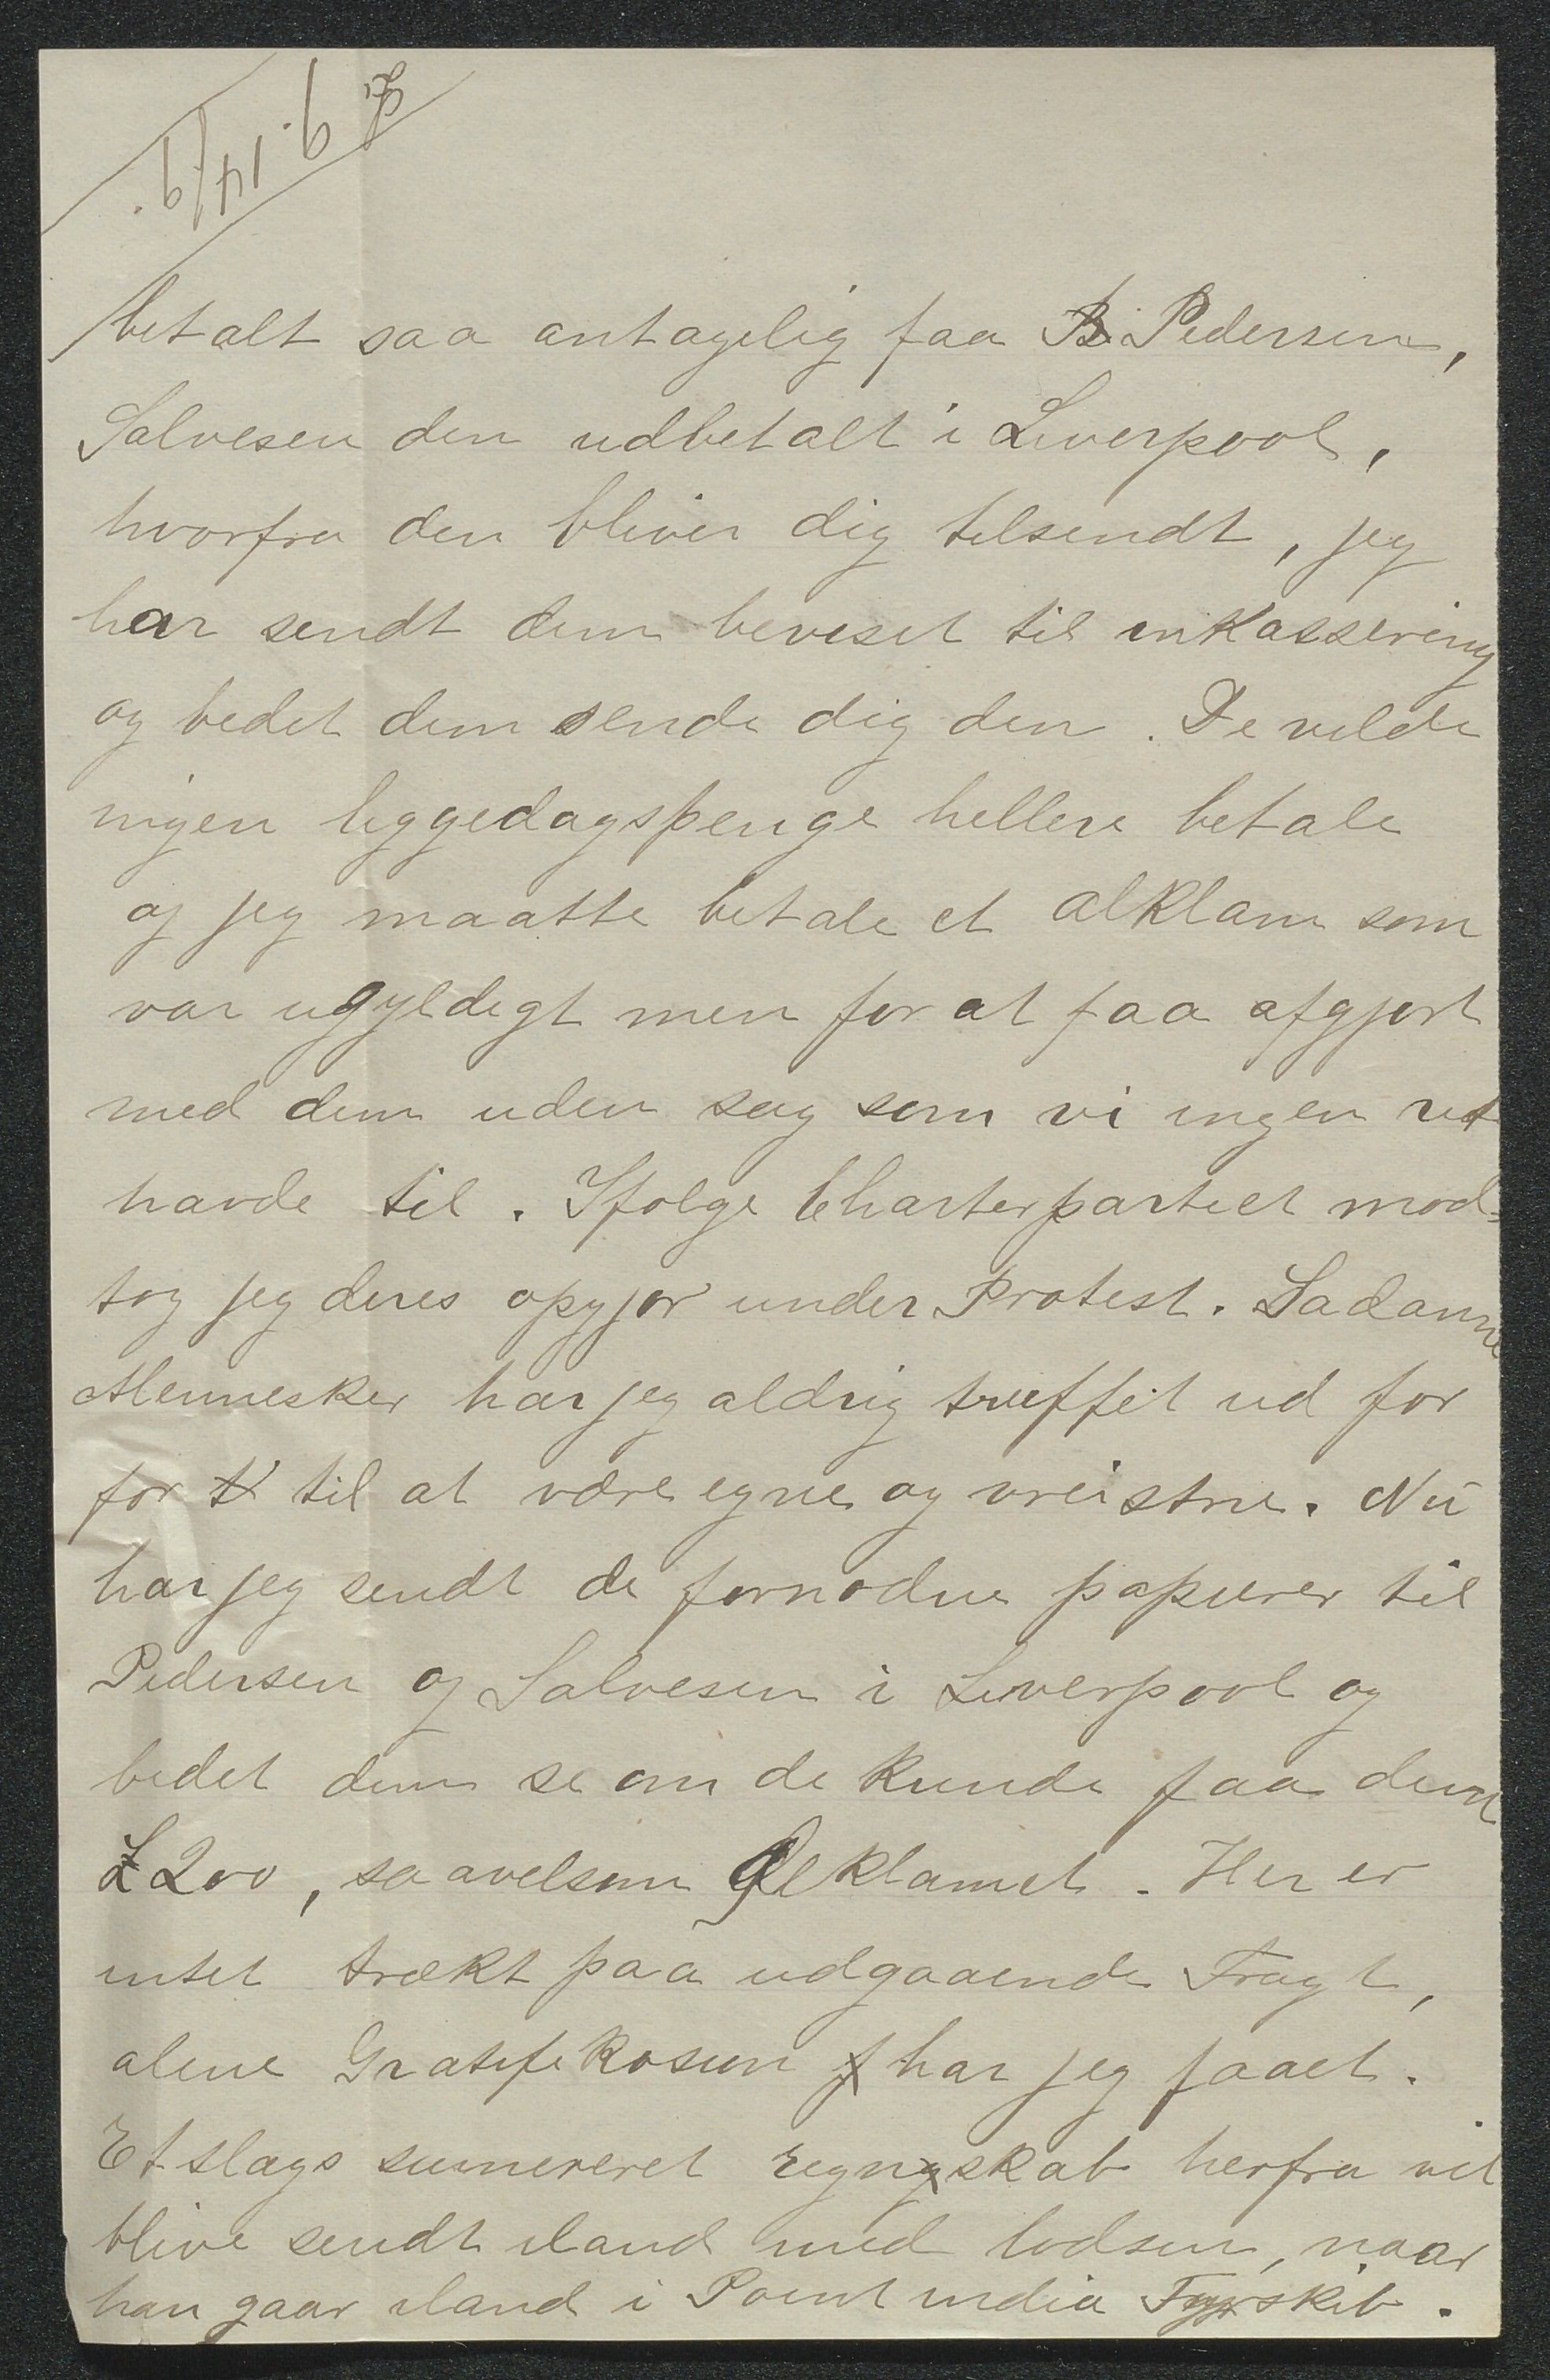 betalt saa antagelig faa B Pedersen,
Salvesen den udbetalt i Liverpool,
hvorfra den bliver dig tilsendt, jeg
har sendt dem beviset til inkassering
og bedet dem sende dig den. De vilde
ingen liggedagspenge hellere betale
og jeg maatte betale et alklam som
var ugyldigt men for at faa afgjort
med dem uden sag som vi ingen ret
havde til. Ifølge Charterpartiet mod-
tog jeg deres opgjør under Protest. Sadanne
Mennesker har jeg aldrig truffet ud for
for t til at være egne og vreistne. Nu
har jeg sendt de fornødne papirer til
Pedersen og Salvesen i Liverpool og
bedet dem se om de kunde faa dem
£ 200, saavelsom Alklamet. Her er
intet trækt paa udgaaende Fragt,
alene Gratifikasion f har jeg faaet.
Et slags sumereret regngskab herfra vil
blive sendt iland med lodsen, naar
han gaar iland i Point india Fyrskib.